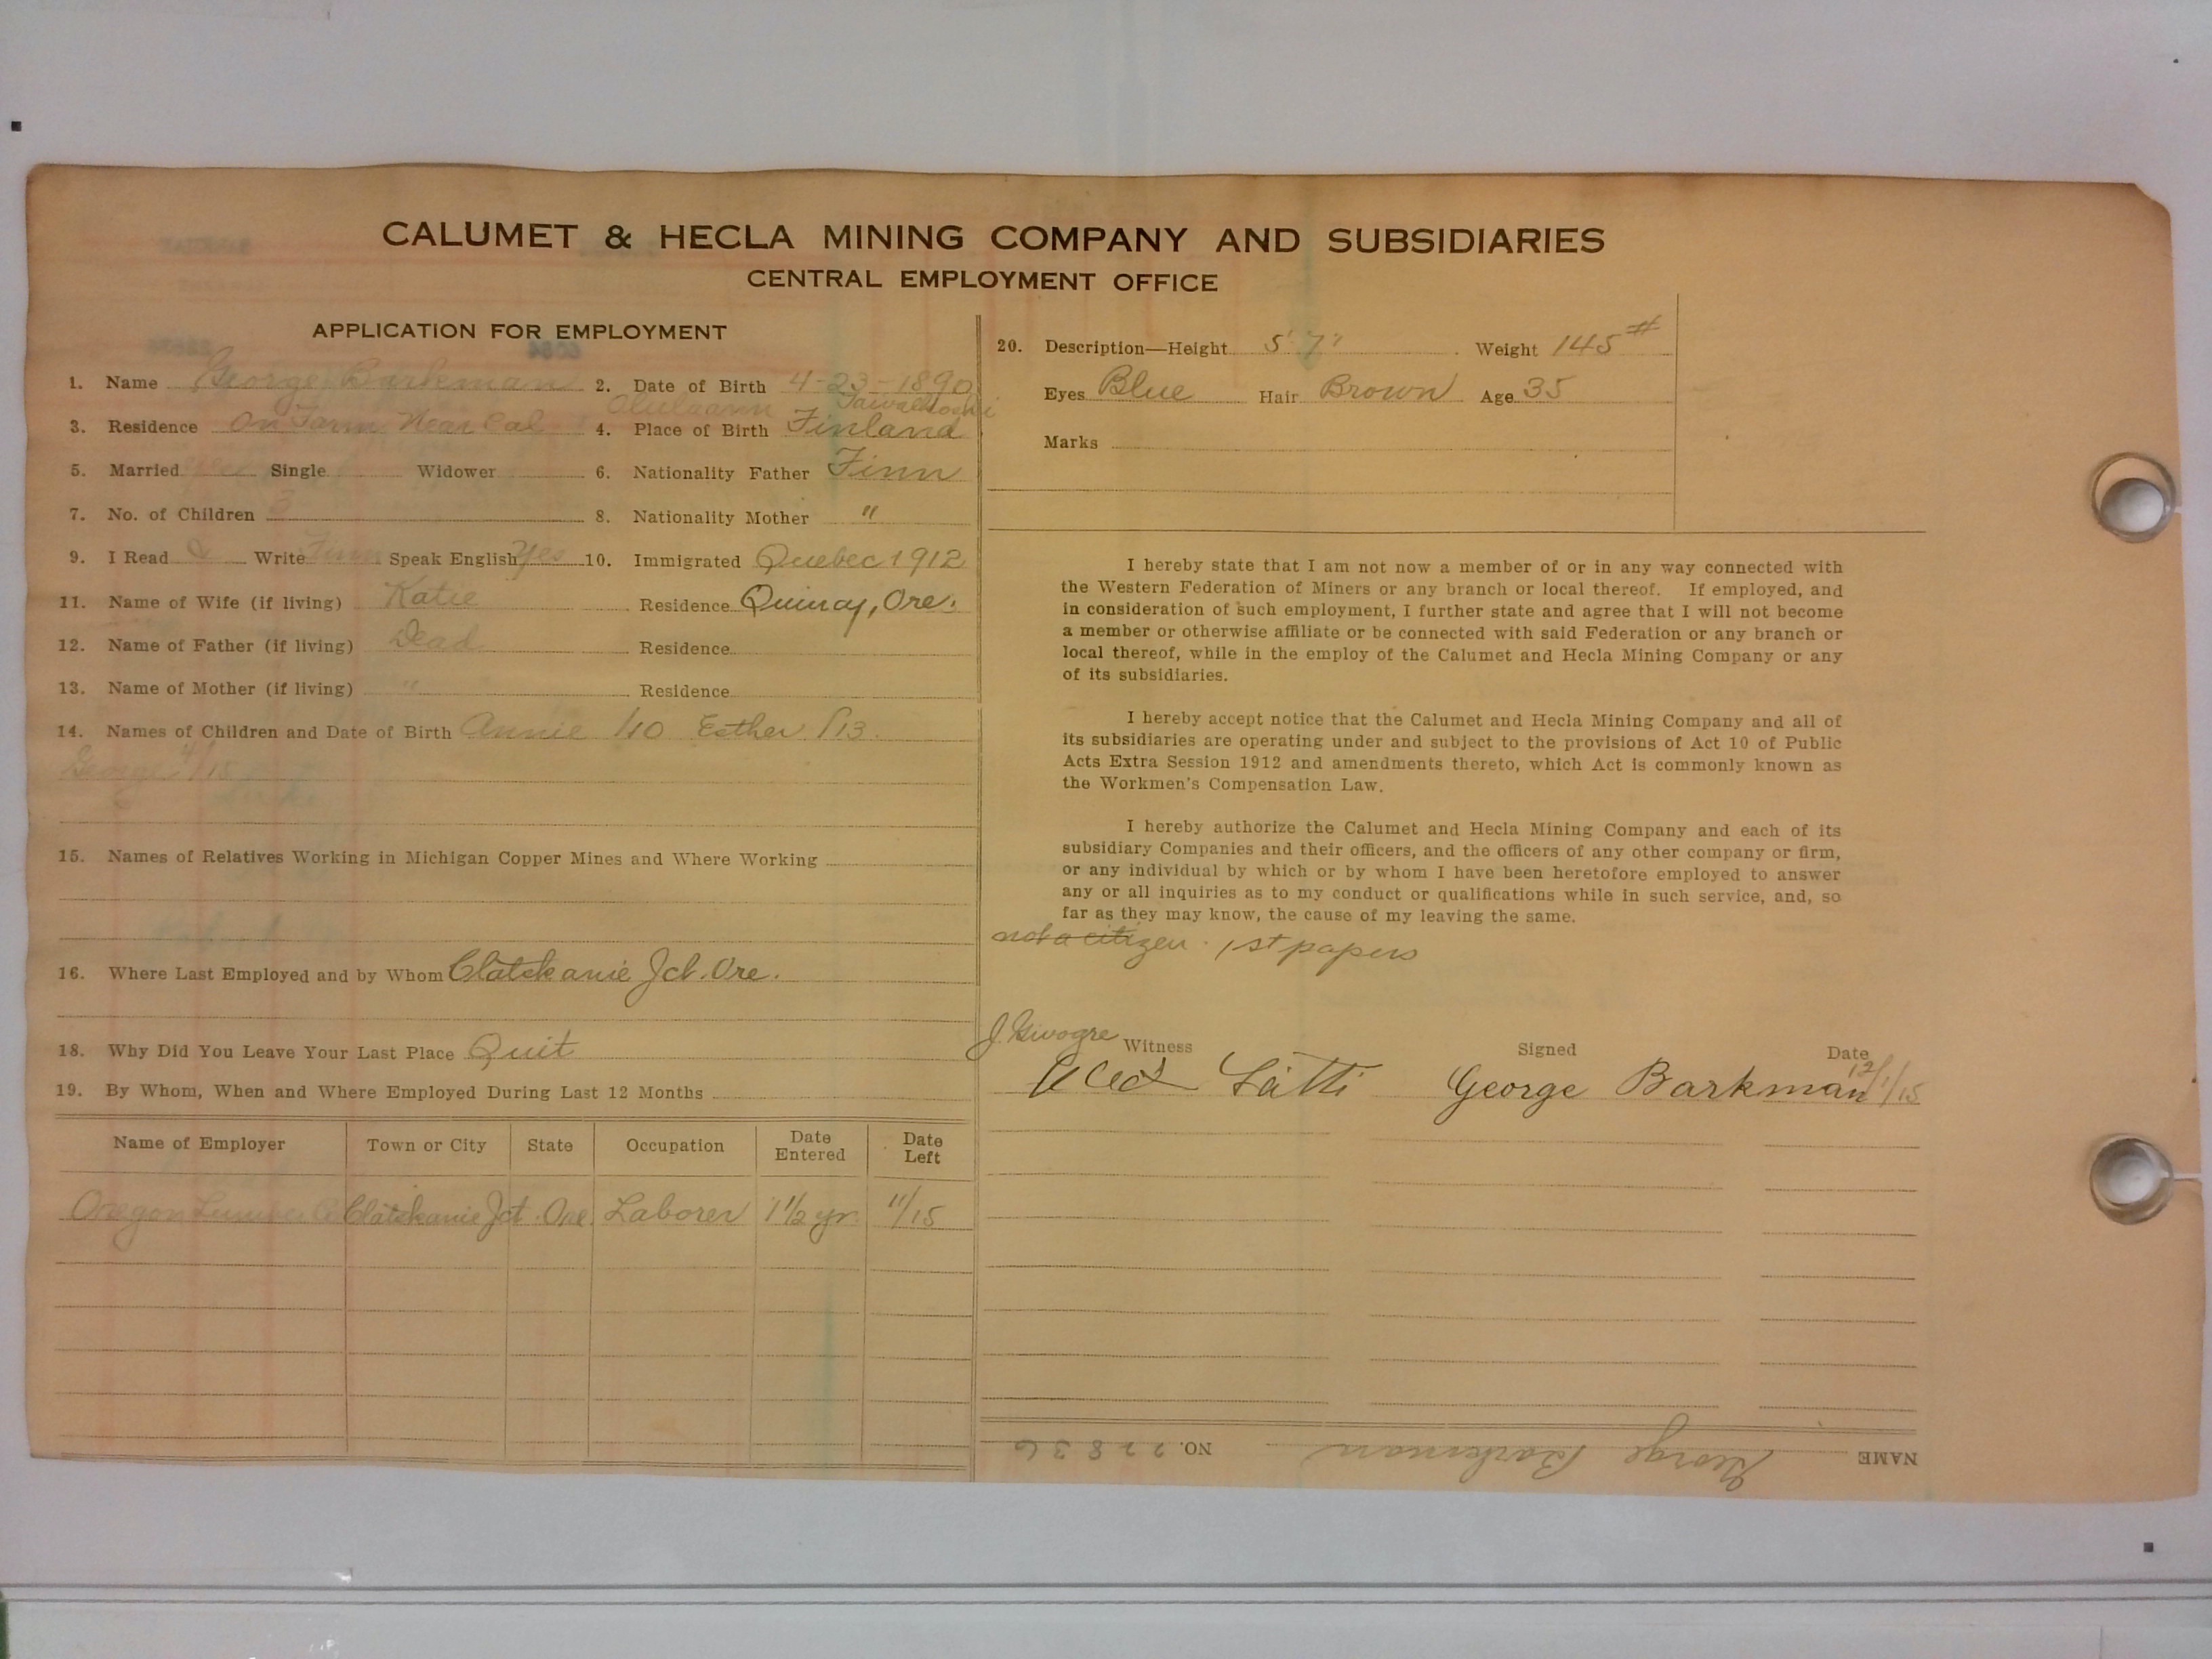 CALUMET & HECLA MINING COMPANY AND SUBSIDIARIES
CENTRAL EMPLOYMENT OFFICE
APPLICATION FOR EMPLOYMENT
1. Name George Barkman 2. Date of Birth 4-23-1890
3. Residence On Farm Near Cal 4. Place of Birth Finland
5. Married Single Widower 6. Nationality Father Finn
7. No. of Children 3 8. Nationality Mother "
9. I Read & Write Finn Speak English Yes 10. Immigrated Quebec 1912
11. Name of Wife (if living) Katie Residence Quincy, Ore.
12. Name of Father (if living) Dead Residence
13. Name of Mother (if living) " Residence
14. Names of Children and Date of Birth Annie /10 Esther /13.
George 4/15
15. Names of Relatives Working in Michigan Copper Mines and Where Working
16. Where Last Employed and by Whom Clatskanie Jct. Ore.
18. Why Did You Leave Your Last Place Quit
19. By Whom, When and Where Employed During Last 12 Months
Name of Employer Town or City State Occupation Date Entered Date Left
Oregon Co Clatskanie Jct. Ore. Laborer 1 1/2 yr. 11/15
20. Description—Height 5' 7" Weight 145 #
Eyes Blue Hair Brown Age 35
Marks
I hereby state that I am not now a member of or in any way connected with
the Western Federation of Miners or any branch or local thereof. If employed, and
in consideration of such employment, I further state and agree that I will not become
a member or otherwise affiliate or be connected with said Federation or any branch or
local thereof, while in the employ of the Calumet and Hecla Mining Company or any
of its subsidiaries.
I hereby accept notice that the Calumet and Hecla Mining Company and all of
its subsidiaries are operating under and subject to the provisions of Act 10 of Public
Acts Extra Session 1912 and amendments thereto, which Act is commonly known as
the Workmen's Compensation Law.
I hereby authorize the Calumet and Hecla Mining Company and each of its
subsidiary Companies and their officers, and the officers of any other company or firm,
or any individual by which or by whom I have been heretofore employed to answer
any or all inquiries as to my conduct or qualifications while in such service, and, so
far as they may know, the cause of my leaving the same.
not a citizen. 1st papers
Witness Signed Date
Lätti George Barkman 12/1/15
NAME George Barkman NO. 22836